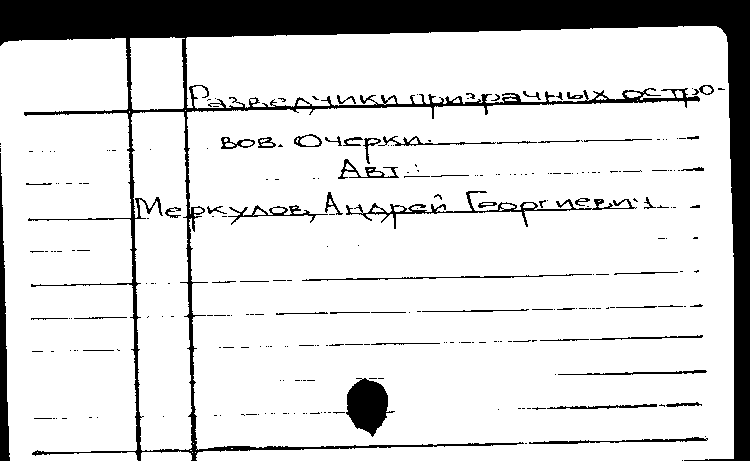 Разведчики призрачных остро-
вов. Очерки.
Авт.:
Меркулов, Андрей Георгиевич.